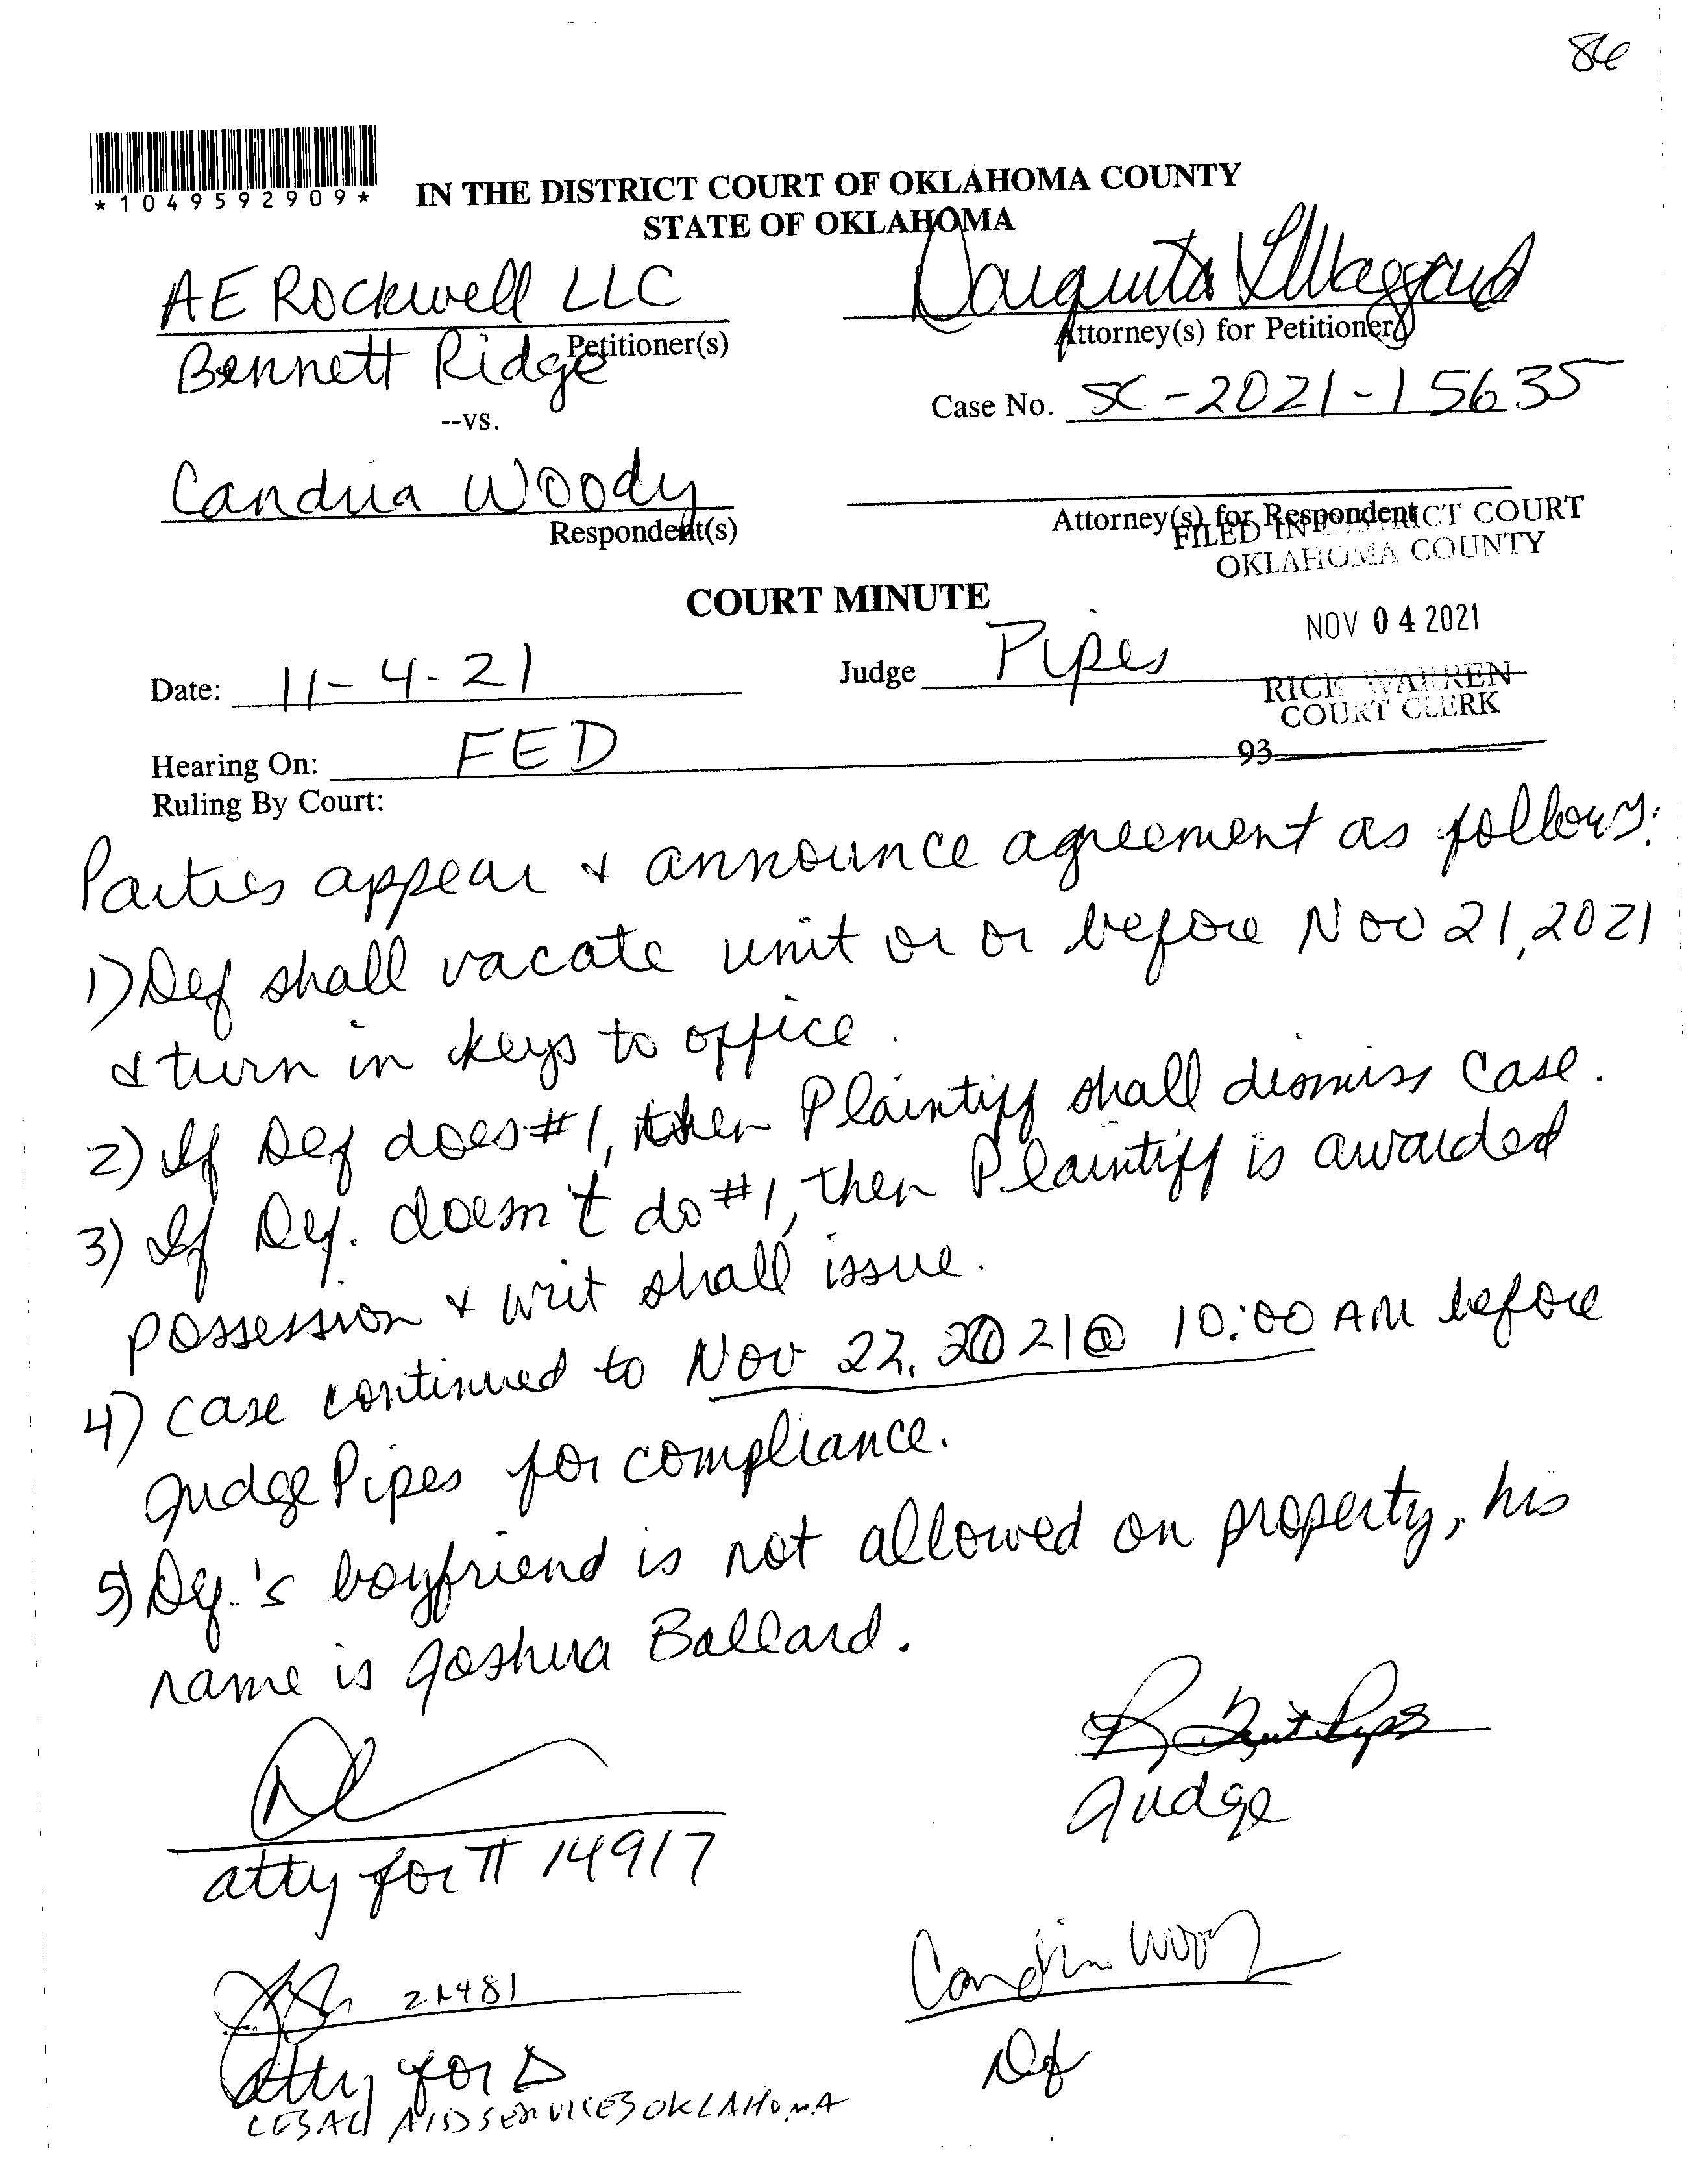 86
*1049592909*
IN THE DISTRICT COURT OF OKLAHOMA COUNTY
STATE OF OKLAHOMA
AE Rockwell LLC
Petitioner(s)
Bennett Ridge
--vs.
Attorney(s) for Petitioner
Case No. SC-2021-15635
Candria Woody
Respondent(s)
Attorney(s) for Respondent
FILED IN DISTRICT COURT
OKLAHOMA COUNTY
COURT MINUTE
NOV 04 2021
Date: 11-4-21
Judge Pipes
RICK WARREN
COURT CLERK
Hearing On: FED
93
Ruling By Court:
Parties appear & announce agreement as follows:
1) Def shall vacate unit or or before Nov 21, 2021
& turn in keys to office.
2) If Def does #1, then Plaintiff shall dismiss case.
3) If Def. doesn't do #1, then Plaintiff is awarded
possession & writ shall issue.
4) Case continued to Nov 22, 2021 @ 10:00 AM before
Judge Pipes for compliance.
5) Def.'s boyfriend is not allowed on property, his
name is Joshua Ballard.
Judge
atty for π 14917
Candria Woody
21481
atty for Δ
Def
LEGAL AID SERVICES OKLAHOMA